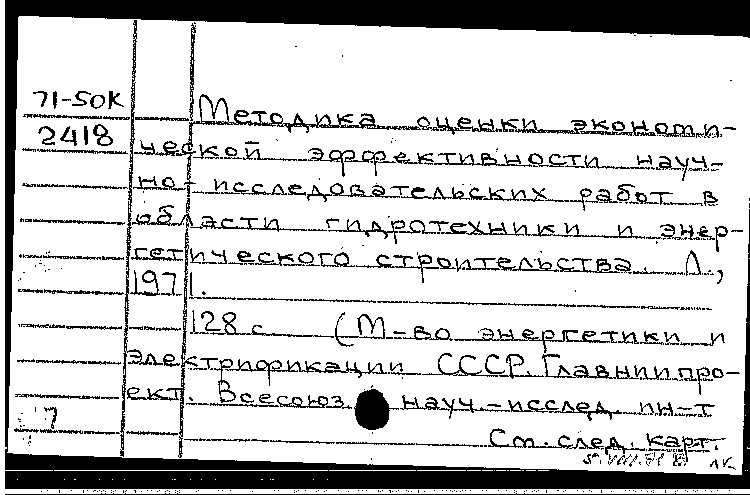 71-50К
2418
Методика оценки экономи-
ческой эффективности науч-
но-исследовательских работ в
области гидротехники и энер-
гетического строительства. Л.,
1971.
128 с. (М-во энергетики и
электрификации СССР. Главниипро-
ект. Всесоюз. науч.-исслед. ин-т
7
См. след. карт.